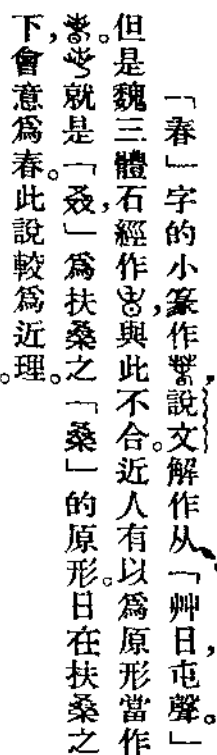 「春」字的小篆作,說文解作从「艸日,屯聲。」
但是魏三體石經作,與此不合。近人有以爲原形當作
。就是「叒」,爲扶桑之「桑」的原形。日在扶桑之
下,會意爲春。此說較爲近理。